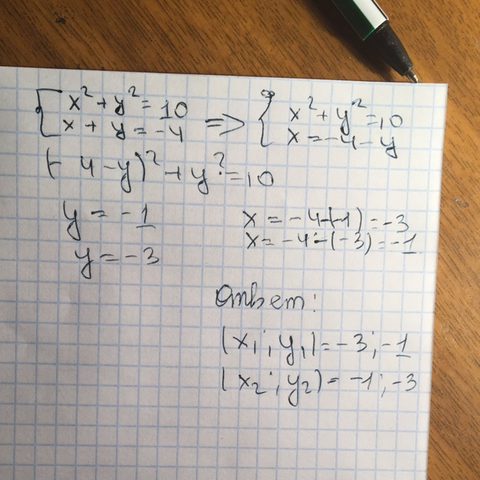 { x² + y² = 10 => { x² + y² = 10
x + y = -4 x = -4 - y
(-4-y)² + y² = 10
y = -1 x = -4-(-1) = -3
y = -3 x = -4-(-3) = -1
Ответ:
(x₁; y₁) = -3; -1
(x₂; y₂) = -1; -3